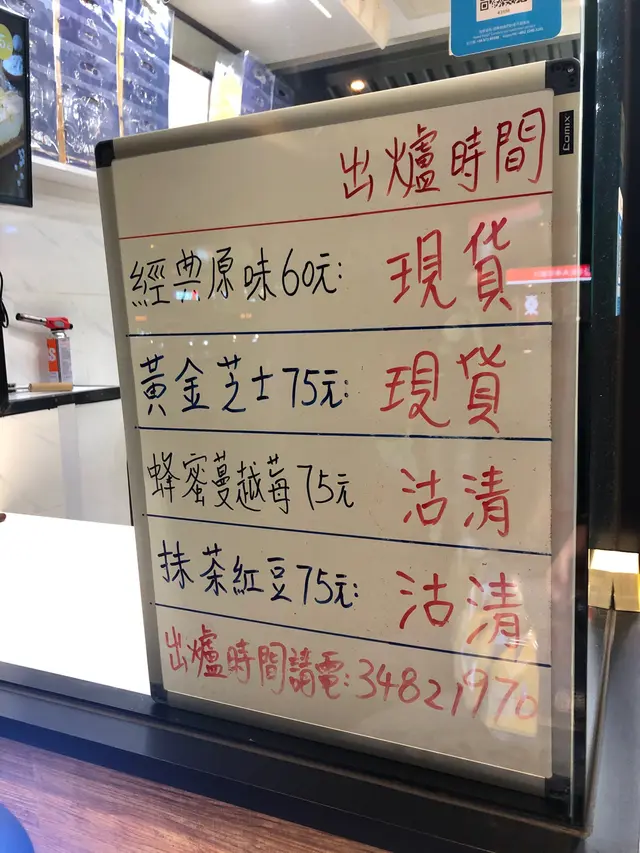 出爐時間
COMIX
經典原味60元: 現貨
黃金芝士75元: 現貨
蜂蜜蔓越莓75元 沽清
抹茶紅豆75元: 沽清
出爐時間請電: 34821970